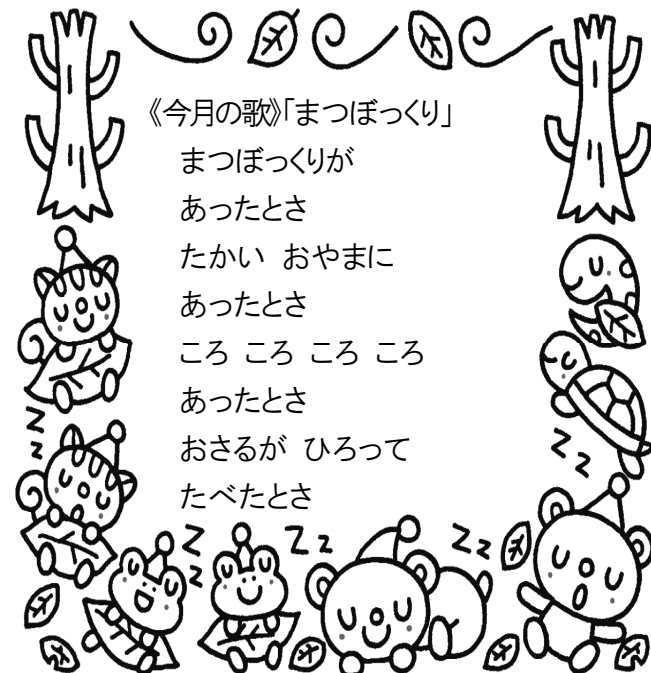 《今月の歌》「まつぼっくり」
まつぼっくりが
あったとさ
たかい おやまに
あったとさ
ころ ころ ころ ころ
あったとさ
おさるが ひろって
たべたとさ
Z
z
z
Z
z
Z z
Z z
Z z